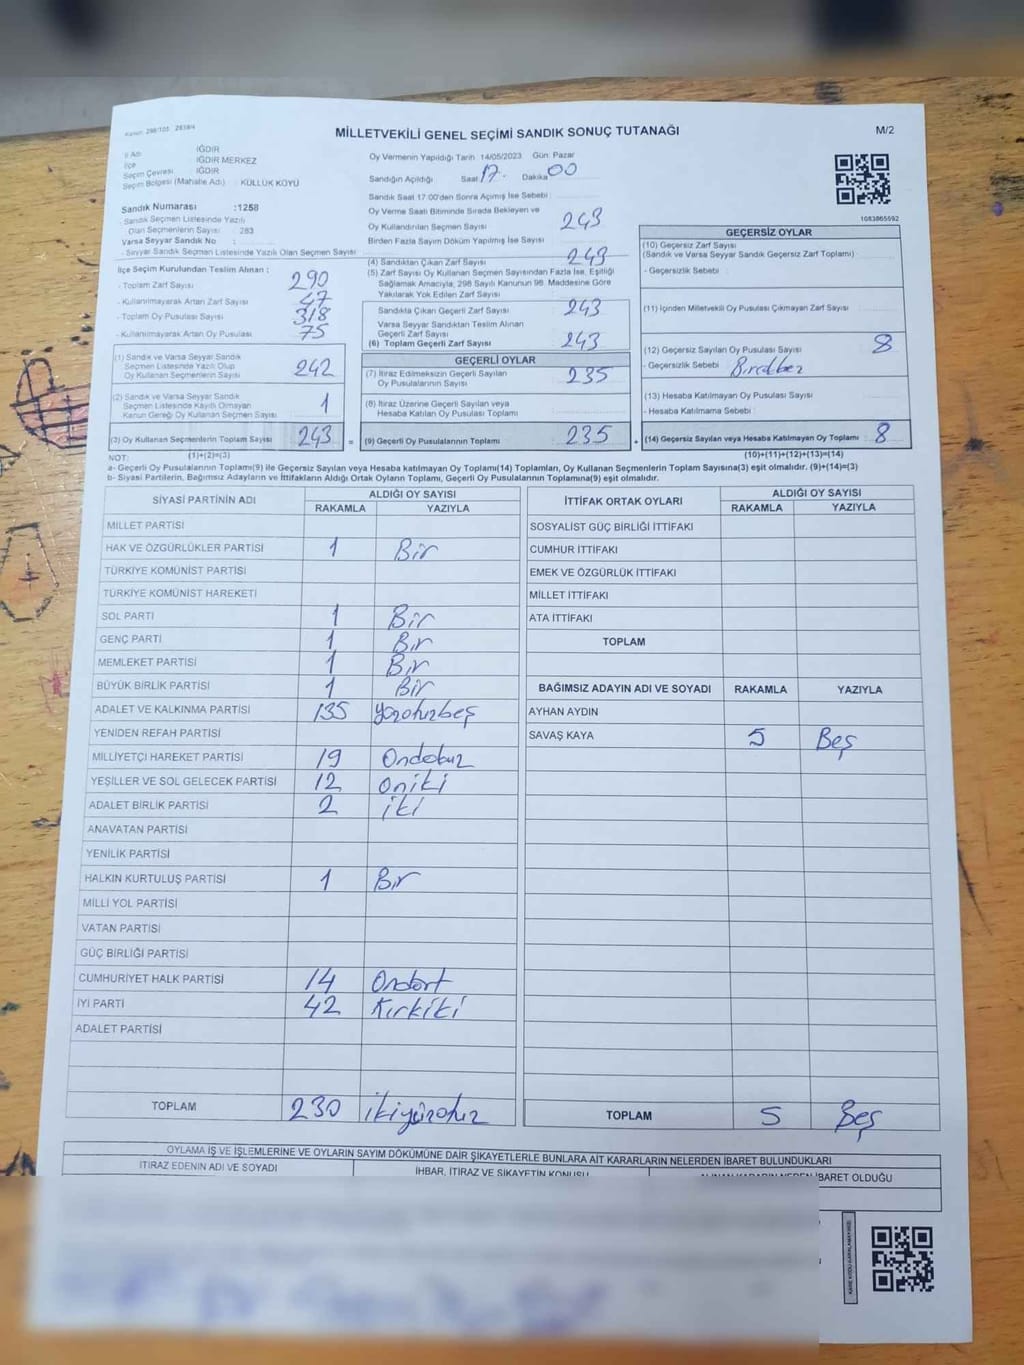 Kanun: 298/105 2839/4
MİLLETVEKİLİ GENEL SEÇİMİ SANDIK SONUÇ TUTANAĞI
M/2
İl Adı IĞDIR
İlçe IĞDIR MERKEZ
Seçim Çevresi IĞDIR
Seçim Bölgesi (Mahalle Adı) : KÜLLÜK KÖYÜ
Sandık Numarası :1258
- Sandık Seçmen Listesinde Yazılı
Olan Seçmenlerin Sayısı : 283
Varsa Seyyar Sandık No :
- Seyyar Sandık Seçmen Listesinde Yazılı Olan Seçmen Sayısı
İlçe Seçim Kurulundan Teslim Alınan :
- Toplam Zarf Sayısı 290
- Kullanılmayarak Artan Zarf Sayısı 47
- Toplam Oy Pusulası Sayısı 318
- Kullanılmayarak Artan Oy Pusulası 75
(1) Sandık ve Varsa Seyyar Sandık
Seçmen Listesinde Yazılı Olup
Oy Kullanan Seçmenlerin Sayısı 242
(2) Sandık ve Varsa Seyyar Sandık
Seçmen Listesinde Kayıtlı Olmayan
Kanun Gereği Oy Kullanan Seçmen Sayısı 1
(3) Oy Kullanan Seçmenlerin Toplam Sayısı 243 =
Oy Vermenin Yapıldığı Tarih 14/05/2023 Gün: Pazar
Sandığın Açıldığı Saat 17. Dakika 00
Sandık Saat 17:00'den Sonra Açılmış İse Sebebi :
Oy Verme Saati Bitiminde Sırada Bekleyen ve
Oy Kullandırılan Seçmen Sayısı 243
Birden Fazla Sayım Döküm Yapılmış İse Sayısı
(4) Sandıktan Çıkan Zarf Sayısı 243
(5) Zarf Sayısı Oy Kullanan Seçmen Sayısından Fazla İse, Eşitliği
Sağlamak Amacıyla, 298 Sayılı Kanunun 98. Maddesine Göre
Yakılarak Yok Edilen Zarf Sayısı
Sandıkta Çıkan Geçerli Zarf Sayısı 243
Varsa Seyyar Sandıktan Teslim Alınan
Geçerli Zarf Sayısı
(6) Toplam Geçerli Zarf Sayısı 243
GEÇERLİ OYLAR
(7) İtiraz Edilmeksizin Geçerli Sayılan
Oy Pusulalarının Sayısı 235
(8) İtiraz Üzerine Geçerli Sayılan veya
Hesaba Katılan Oy Pusulası Toplamı
(9) Geçerli Oy Pusulalarının Toplamı 235
1083865592
GEÇERSİZ OYLAR
(10) Geçersiz Zarf Sayısı
(Sandık ve Varsa Seyyar Sandık Geçersiz Zarf Toplamı)
- Geçersizlik Sebebi
(11) İçinden Milletvekili Oy Pusulası Çıkmayan Zarf Sayısı
(12) Geçersiz Sayılan Oy Pusulası Sayısı 8
- Geçersizlik Sebebi
(13) Hesaba Katılmayan Oy Pusulası Sayısı
- Hesaba Katılmama Sebebi
(14) Geçersiz Sayılan veya Hesaba Katılmayan Oy Toplamı 8
NOT: (1)+(2)=(3) (10)+(11)+(12)+(13)=(14)
a- Geçerli Oy Pusulalarının Toplamı(9) ile Geçersiz Sayılan veya Hesaba Katılmayan Oy Toplamı(14) Toplamları, Oy Kullanan Seçmenlerin Toplam Sayısına(3) eşit olmalıdır. (9)+(14)=(3)
b- Siyasi Partilerin, Bağımsız Adayların ve İttifakların Aldığı Ortak Oyların Toplamı, Geçerli Oy Pusulalarının Toplamına(9) eşit olmalıdır.
SİYASİ PARTİNİN ADI ALDIĞI OY SAYISI
RAKAMLA YAZIYLA
MİLLET PARTİSİ
HAK VE ÖZGÜRLÜKLER PARTİSİ 1 Bir
TÜRKİYE KOMÜNİST PARTİSİ
TÜRKİYE KOMÜNİST HAREKETİ
SOL PARTİ 1 Bir
GENÇ PARTİ 1 Bir
MEMLEKET PARTİSİ 1 Bir
BÜYÜK BİRLİK PARTİSİ 1 Bir
ADALET VE KALKINMA PARTİSİ 135 yüzotuzbeş
YENİDEN REFAH PARTİSİ
MİLLİYETÇİ HAREKET PARTİSİ 19 Ondokuz
YEŞİLLER VE SOL GELECEK PARTİSİ 12 Oniki
ADALET BİRLİK PARTİSİ 2 iki
ANAVATAN PARTİSİ
YENİLİK PARTİSİ
HALKIN KURTULUŞ PARTİSİ 1 Bir
MİLLİ YOL PARTİSİ
VATAN PARTİSİ
GÜÇ BİRLİĞİ PARTİSİ
CUMHURİYET HALK PARTİSİ 14 Ondört
İYİ PARTİ 42 Kırkiki
ADALET PARTİSİ
TOPLAM 230 ikiyüzotuz
İTTİFAK ORTAK OYLARI ALDIĞI OY SAYISI
RAKAMLA YAZIYLA
SOSYALİST GÜÇ BİRLİĞİ İTTİFAKI
CUMHUR İTTİFAKI
EMEK VE ÖZGÜRLÜK İTTİFAKI
MİLLET İTTİFAKI
ATA İTTİFAKI
TOPLAM
BAĞIMSIZ ADAYIN ADI VE SOYADI RAKAMLA YAZIYLA
AYHAN AYDIN
SAVAŞ KAYA 5 Beş
TOPLAM 5 Beş
OYLAMA İŞ VE İŞLEMLERİNE VE OYLARIN SAYIM DÖKÜMÜNE DAİR ŞİKAYETLERLE BUNLARA AİT KARARLARIN NELERDEN İBARET BULUNDUKLARI
İTİRAZ EDENİN ADI VE SOYADI
İHBAR, İTİRAZ VE ŞİKAYETİN KONUSU
ALINAN KARARIN NEDEN İBARET OLDUĞU
KARE KODU KARALAMAYINIZ!